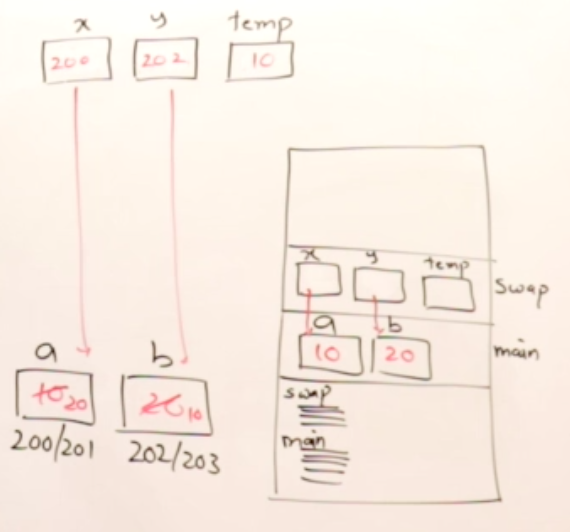 x y temp
200 202 10
a b
10 20 20 10
200/201 202/203
x y temp
swap
a b
10 20
main
swap
main